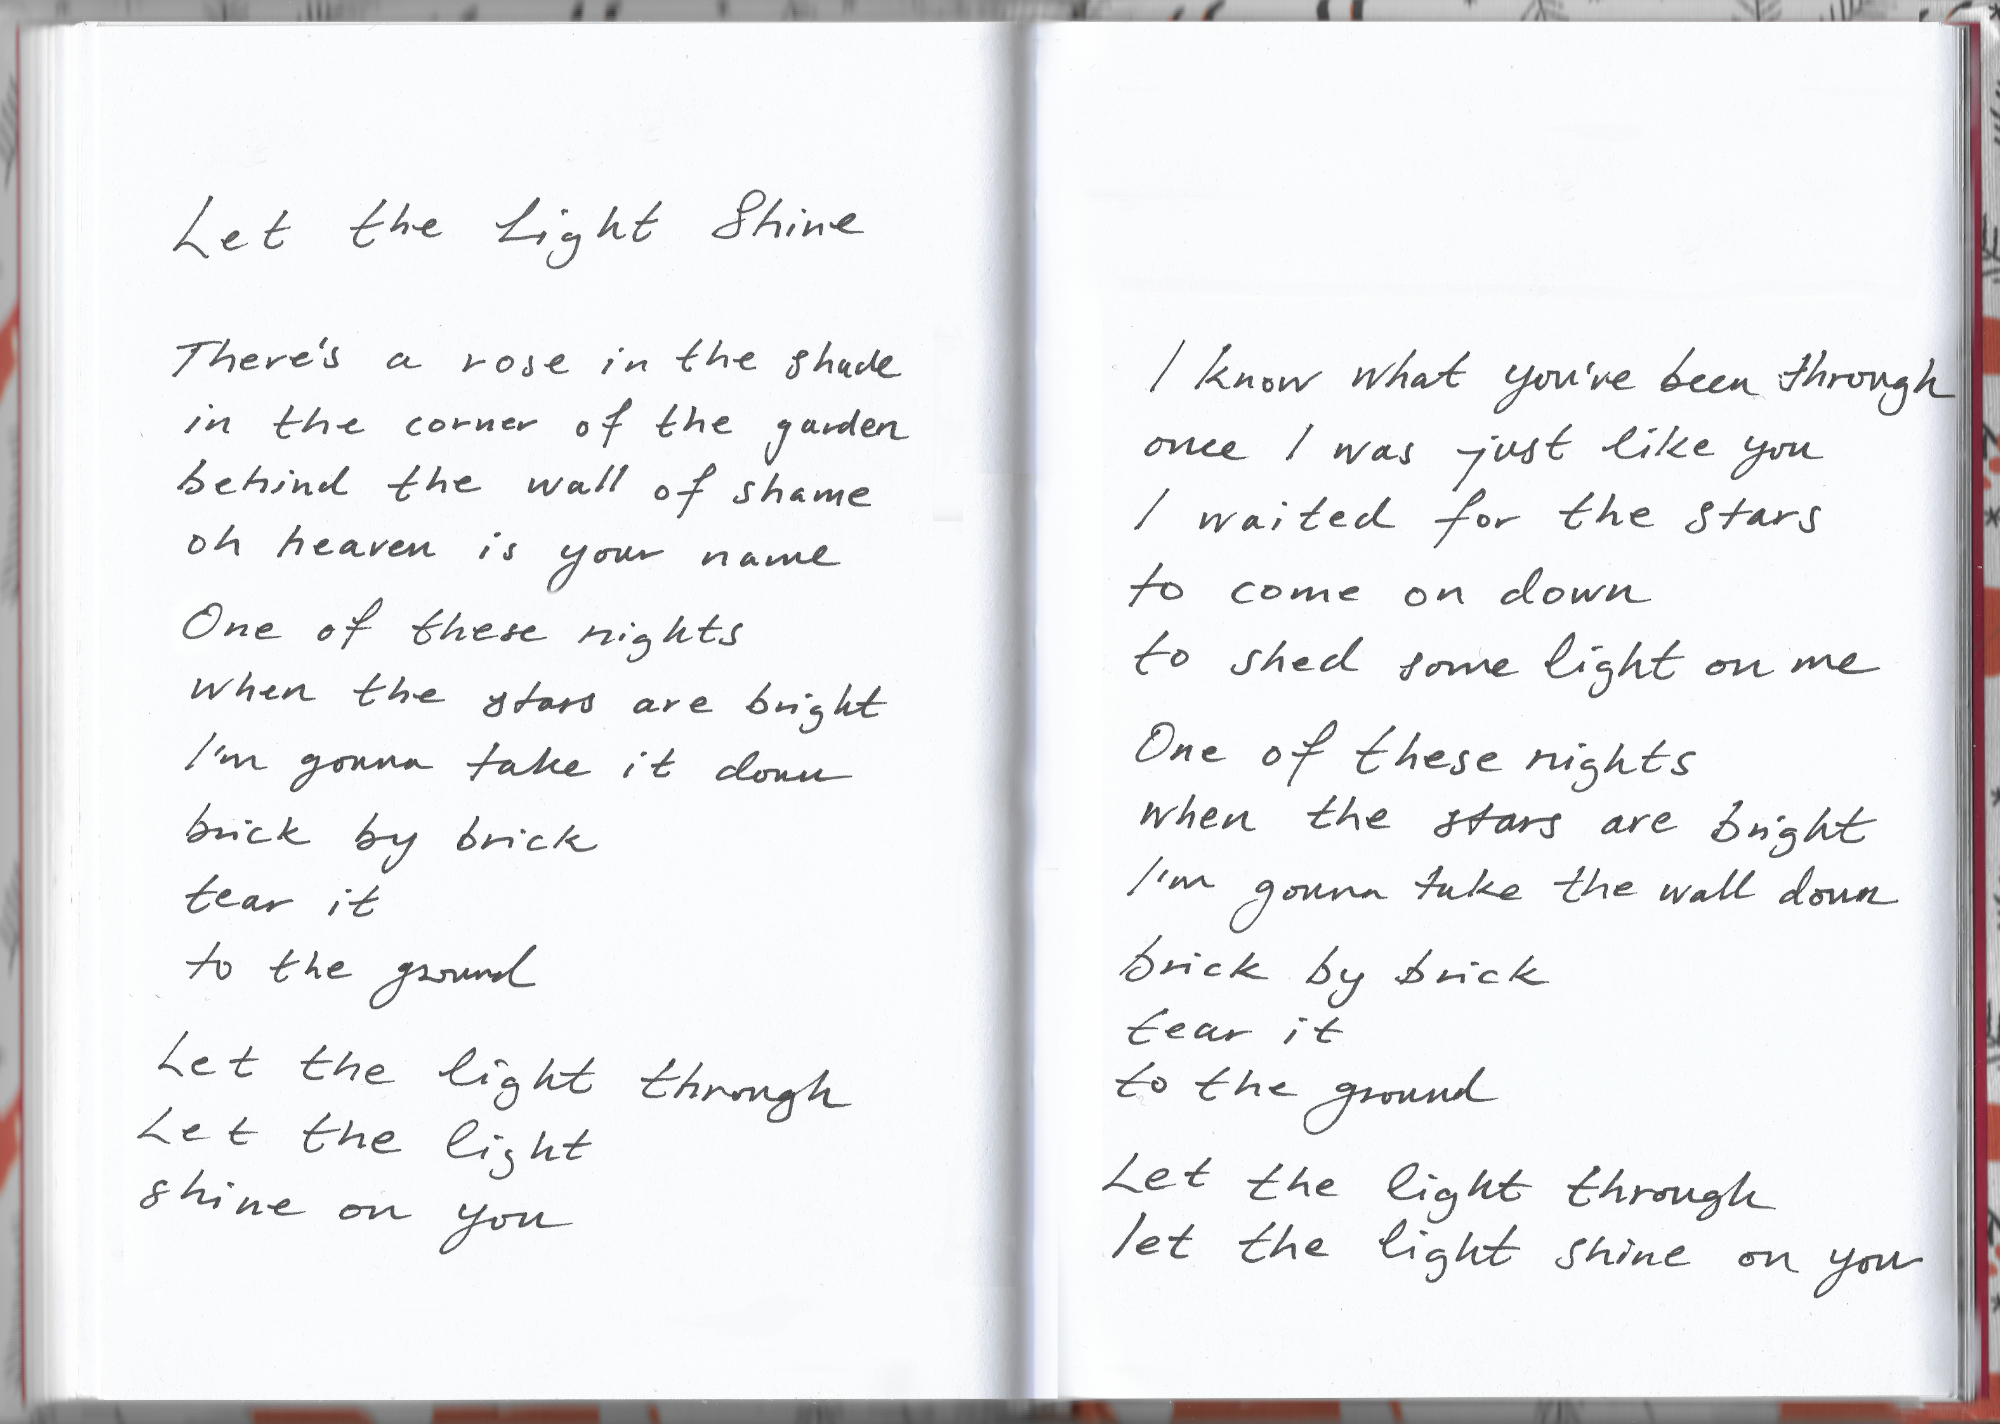 Let the Light Shine
There's a rose in the shade
in the corner of the garden
behind the wall of shame
oh heaven is your name
One of these nights
when the stars are bright
I'm gonna take it down
brick by brick
tear it
to the ground
Let the light through
Let the light
shine on you
I know what you've been through
once I was just like you
I waited for the stars
to come on down
to shed some light on me
One of these nights
when the stars are bright
I'm gonna take the wall down
brick by brick
tear it
to the ground
Let the light through
let the light shine on you